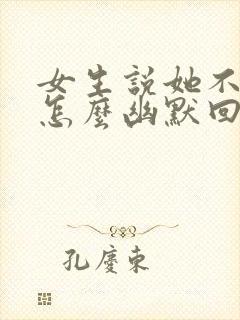 女生説她不
怎麼幽默回
孔慶東